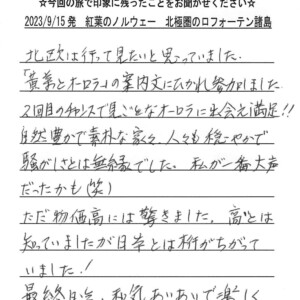 ☆今回の旅で印象に残ったことをお聞かせください☆
2023/9/15発 紅葉のノルウェー 北極圏のロフォーテン諸島
北欧は行って見たいと思っていました。
「黄葉とオーロラ」の案内文にひかれ参加しました
2回目のチャンスで見ごとなオーロラに出会え大満足!!
自然豊かで素朴な家々、人々も穏やかで
騒がしさとは無縁でした。私が一番大声
だったかも(笑)
ただ物価高には驚きました。高いとは
知っていましたが日本とは桁がちがって
いました!
最終日迄、和気あいあいで楽しく